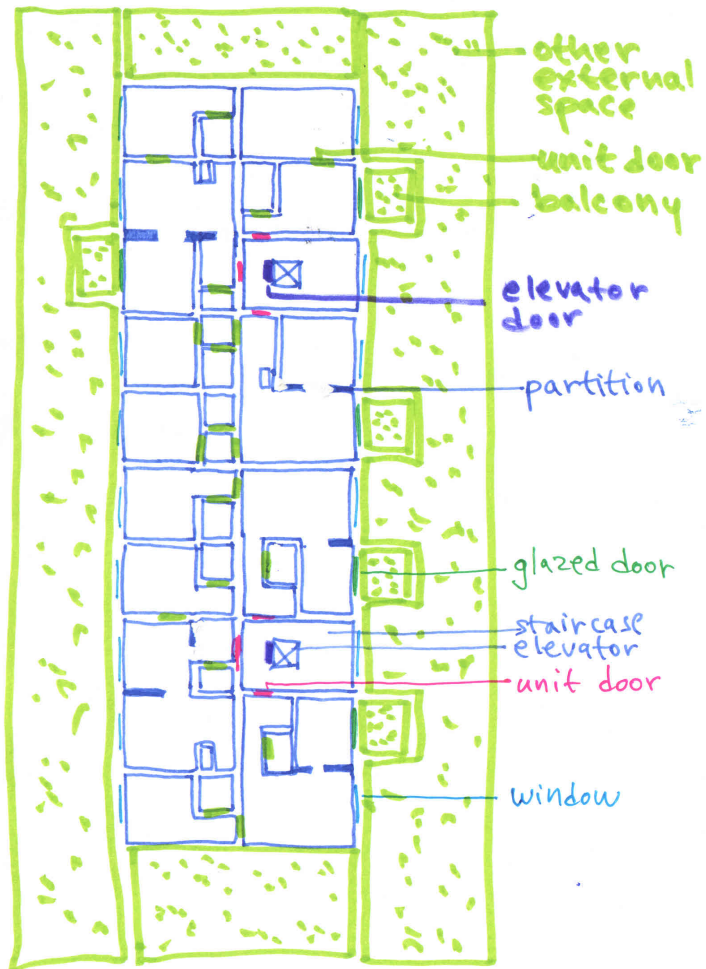 other
external
space
unit door
balcony
elevator
door
partition
glazed door
staircase
elevator
unit door
window